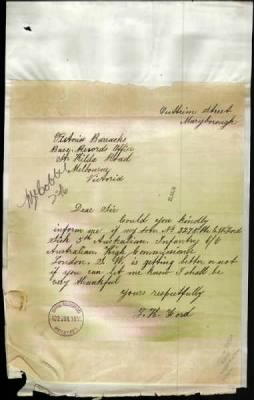 Outtrim Street
Maryborough
Victoria Barracks
Base Records Office
St Kilda Road
Melbourne
Victoria
Dear Sir
Could you kindly
inform me if my son No 3278
5th Australian Infantry C/o
Australian High Commissioner
London. is getting better or not
if you can let me know I shall be
very thankful
Yours respectfully
Ford